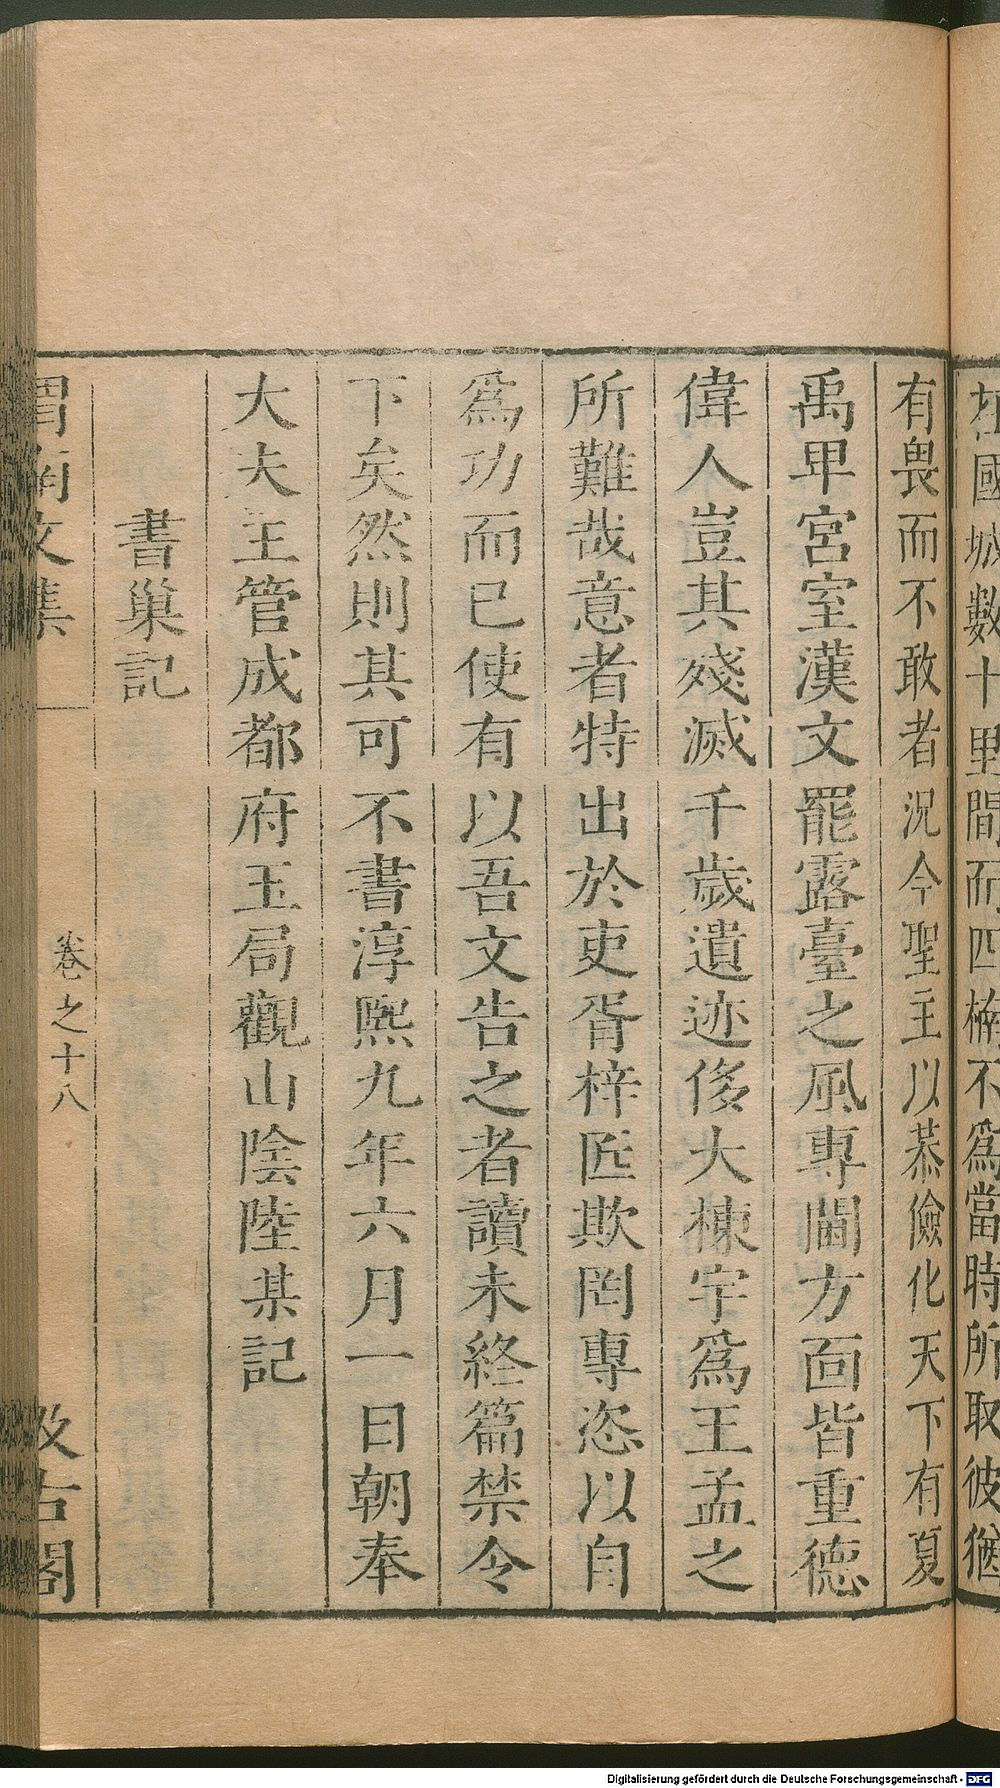 在國城數十里間而四楠不爲當時所取彼猶
有畏而不敢者況今聖主以恭儉化天下有夏
禹卑宮室漢文罷露臺之風專閫方面皆重德
偉人豈其殘滅千歲遺迹侈大棟宇爲王孟之
所難哉意者特出於吏胥梓匠欺罔專恣以自
爲功而已使有以吾文告之者讀未終篇禁令
下矣然則其可不書淳熙九年六月一日朝奉
大夫主管成都府玉局觀山陰陸某記
書巢記
渭南文集
卷之十八
汲古閣
Digitalisierung gefördert durch die Deutsche Forschungsgemeinschaft - DFG